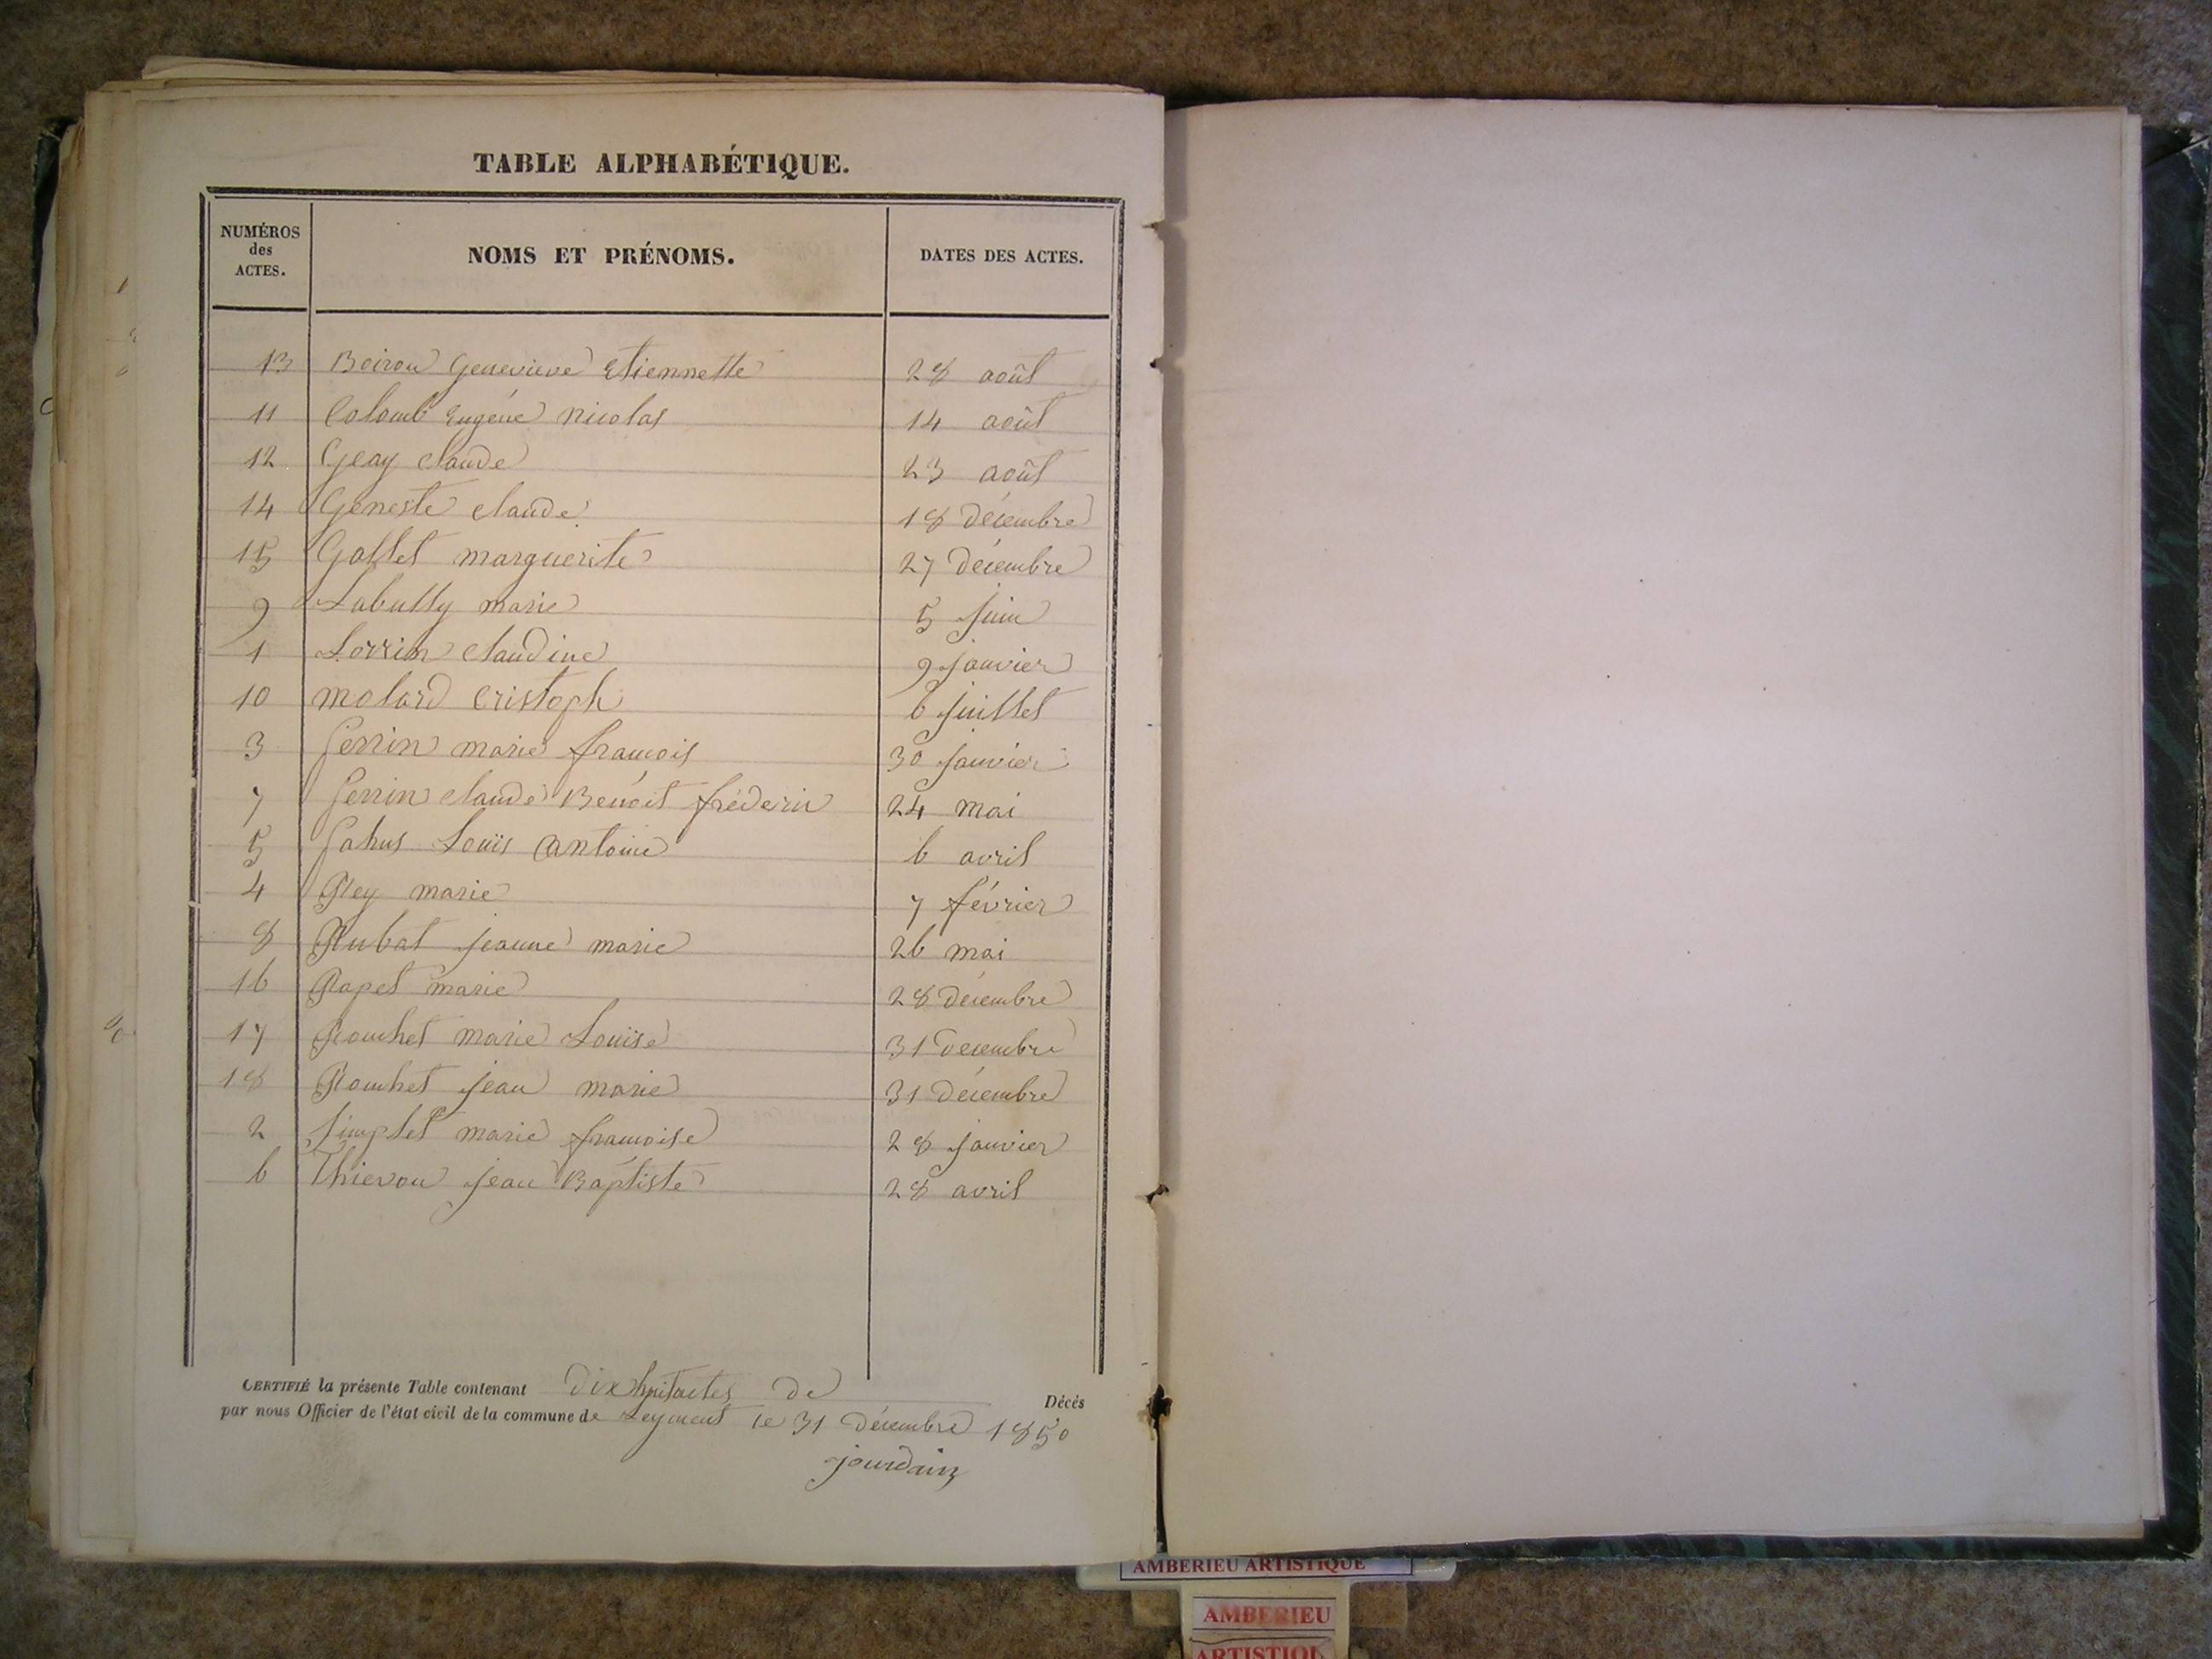 TABLE ALPHABÉTIQUE.
NUMÉROS des ACTES. NOMS ET PRÉNOMS. DATES DES ACTES.
13 Boiron Geneviève Etiennette 28 août
11 Colomb Eugène nicolas 14 août
12 Geay claude 23 août
14 Geneste claude 18 décembre
15 Gollet marguerite 27 décembre
9 Labully marie 5 juin
1 Lorrin claudine 9 janvier
10 molard cristoph 6 juillet
3 Perrin marie françois 30 janvier
7 Perrin claude Benoit fréderic 24 mai
5 Pahus Louis antoine 6 avril
4 Rey marie 7 février
8 Rubat jeanne marie 26 mai
16 Rapet marie 28 décembre
17 Ronchet marie Louise 31 decembre
18 Ronchet jean marie 31 décembre
2 Simplet marie françoise 28 janvier
6 Thievon jean Baptiste 28 avril
CERTIFIÉ la présente Table contenant Dix huit actes de Décès
par nous Officier de l'état civil de la commune de Leyment le 31 décembre 1850
jourdain
AMBERIEU ARTISTIQUE
AMBERIEU